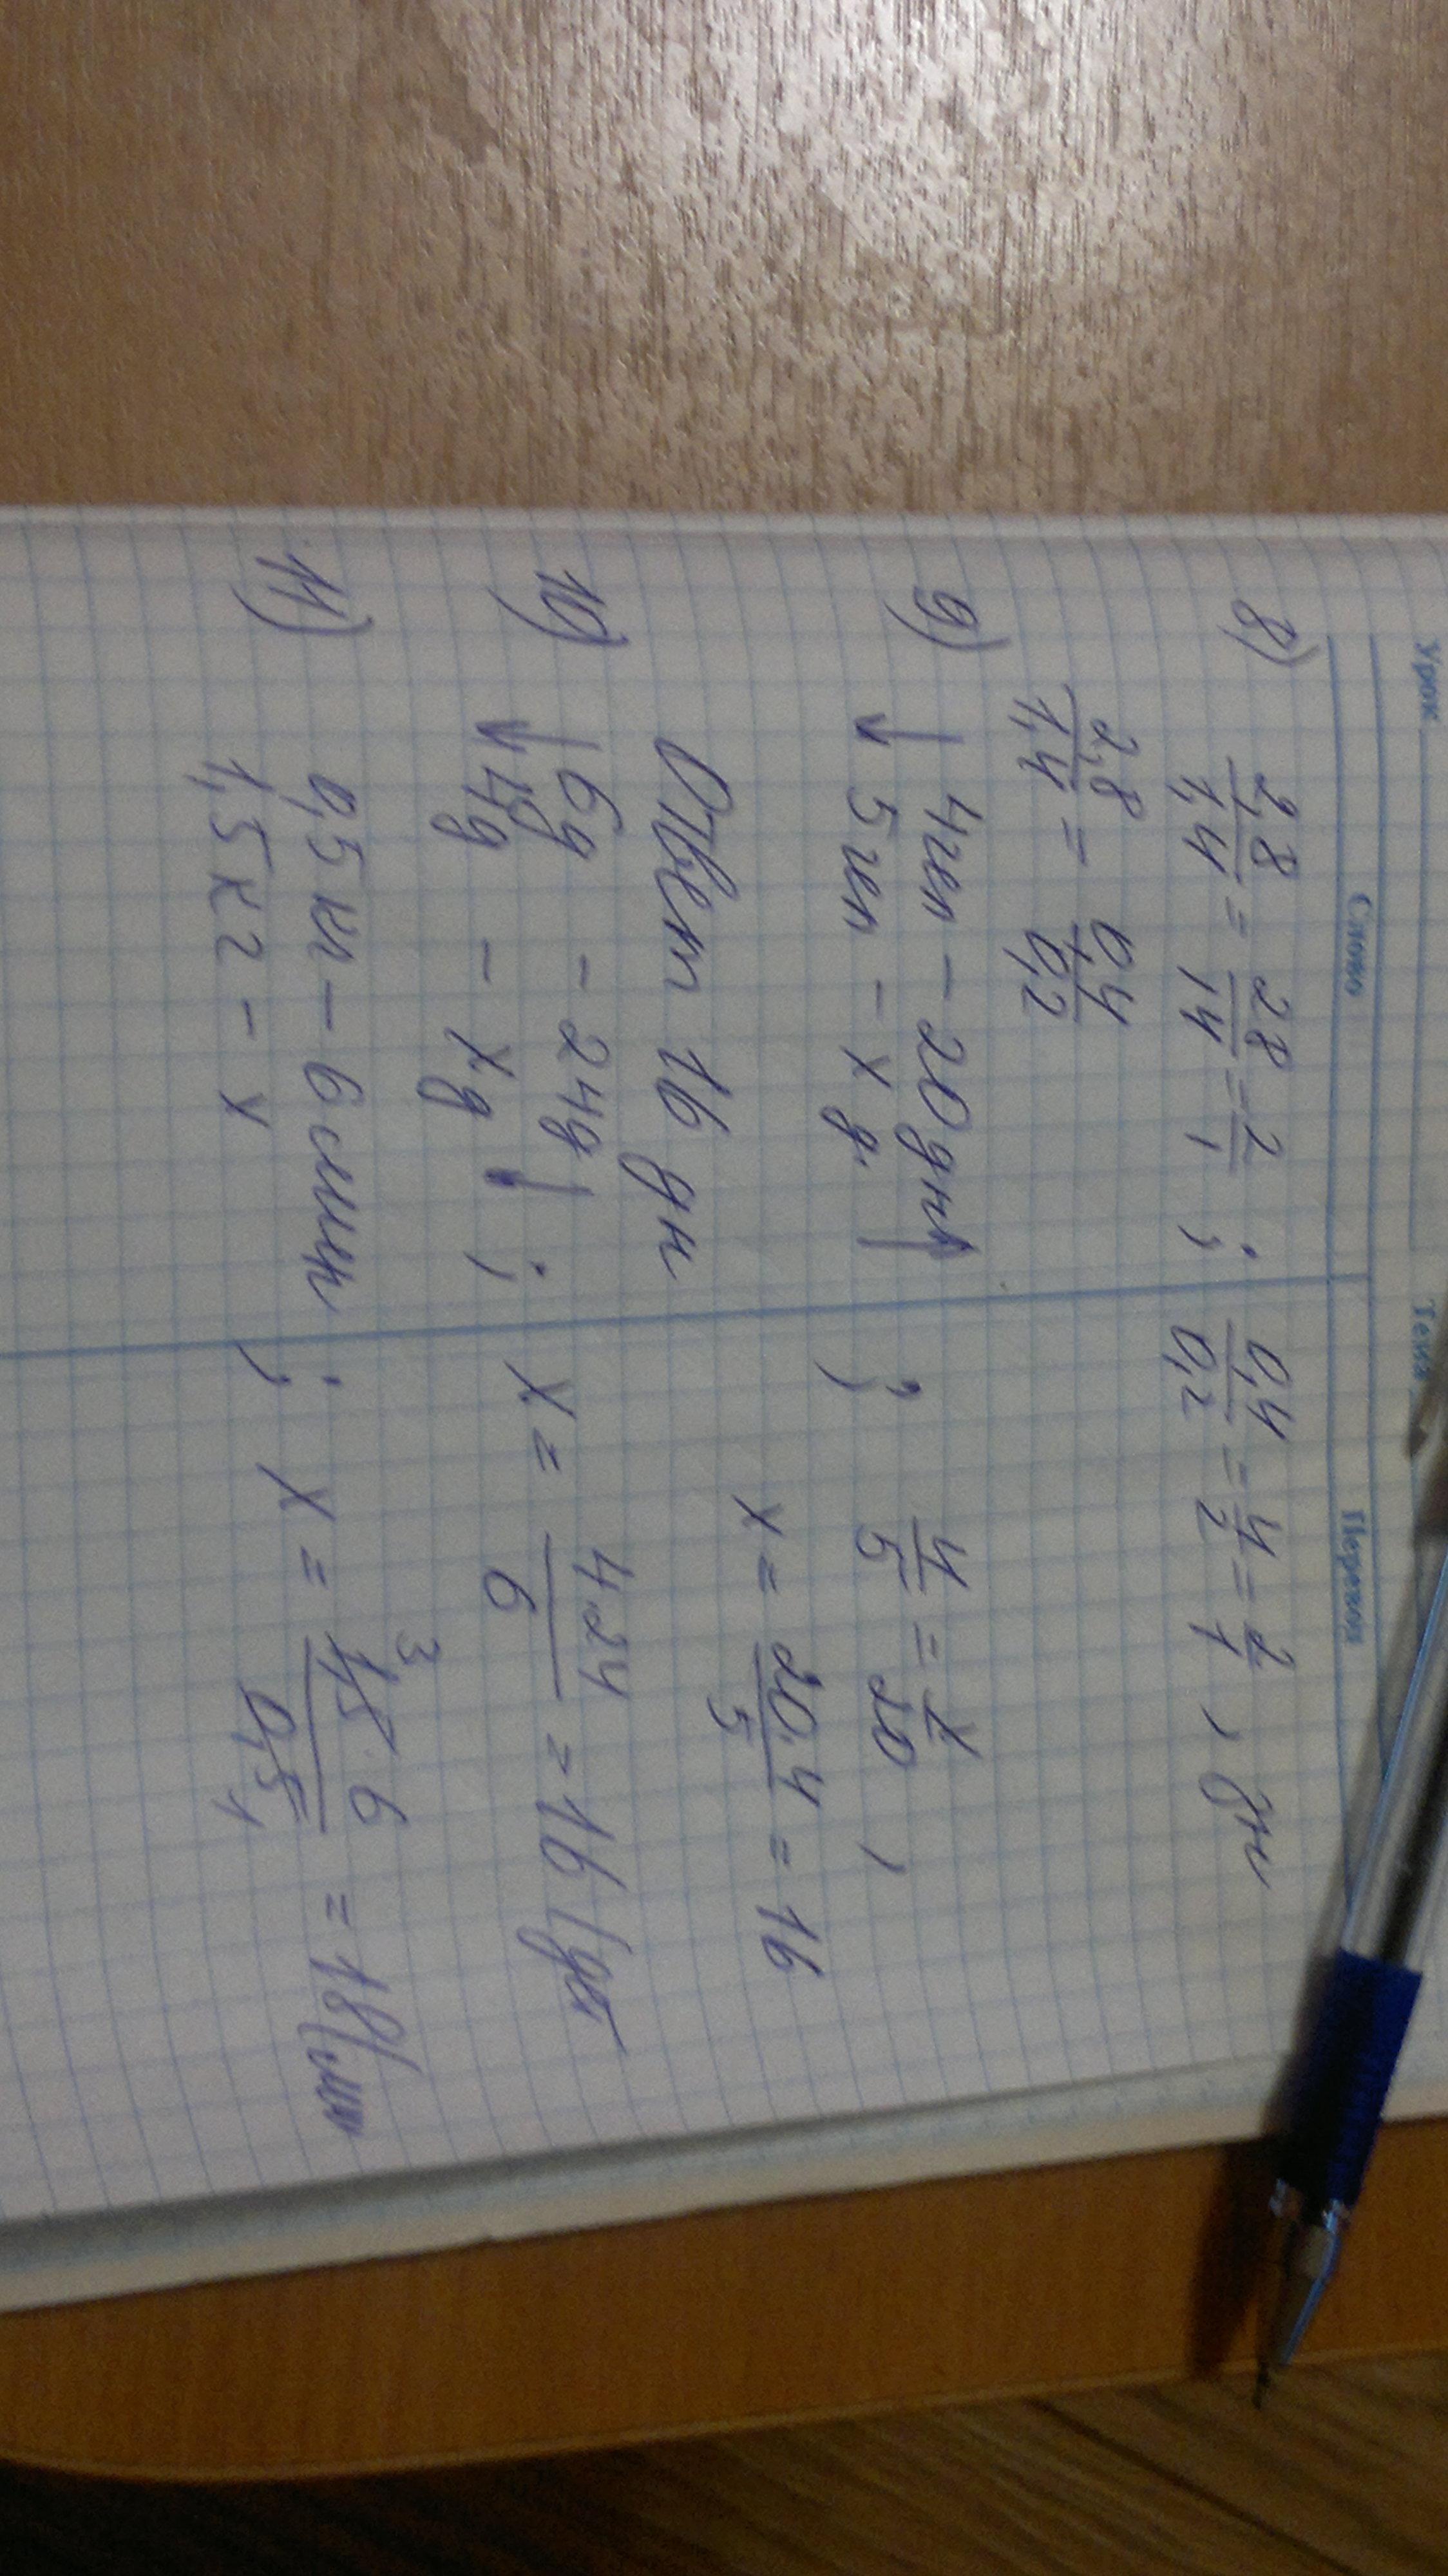 Урок Тема
Слово Перевод
8) 2,8/1,4 = 28/14 = 2/1 ; 0,4/0,2 = 4/2 = 2/1 ,
2,8/1,4 = 0,4/0,2
9) ↓ 4чел – 20 дн ↑ ; 4/5 = x/20 ,
5чел – x д. x = 20·4/5 = 16
Ответ 16 дн
10) ↓ 6д – 24д ↓ ; x = 4·24/6 = 16
4д – xд
11) 0,5 кг – 6 ; x = 1,5·6/0,5 = 18
3 1
1,5 кг – x